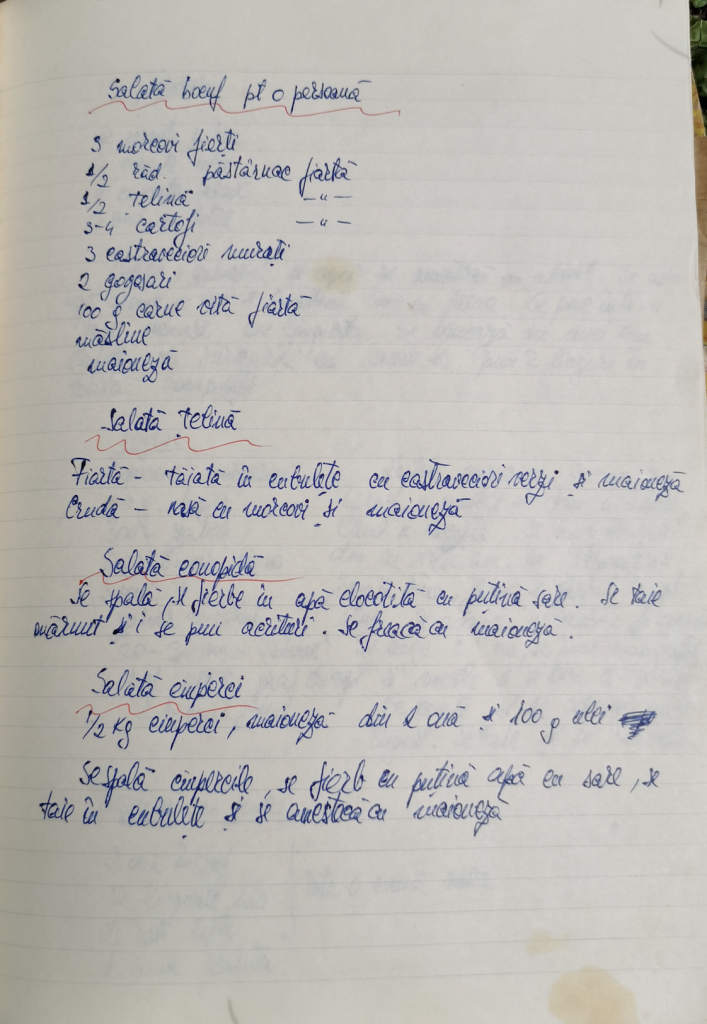 Salată boeuf pt o persoană
3 morcovi fierți
1/2 răd. păstârnac fiartă
1/2 telină —"—
3-4 cartofi —"—
3 castraveciori murați
2 gogoșari
100 g carne vită fiartă
măsline
maioneză
Salată telină
Fiartă - tăiată în cubulețe cu castraveciori verzi și maioneză
Crudă - rasă cu morcovi și maioneză
Salată conopidă
Se spală, se fierbe în apă clocotită cu puțină sare. Se taie
mărunt și i se pun acrituri. Se freacă cu maioneză.
Salată ciuperci
1/2 kg ciuperci, maioneză din 1 ouă și 100 g ulei
Se spală ciupercile, se fierb cu puțină apă cu sare, se
taie în cubulețe și se amestică cu maioneză